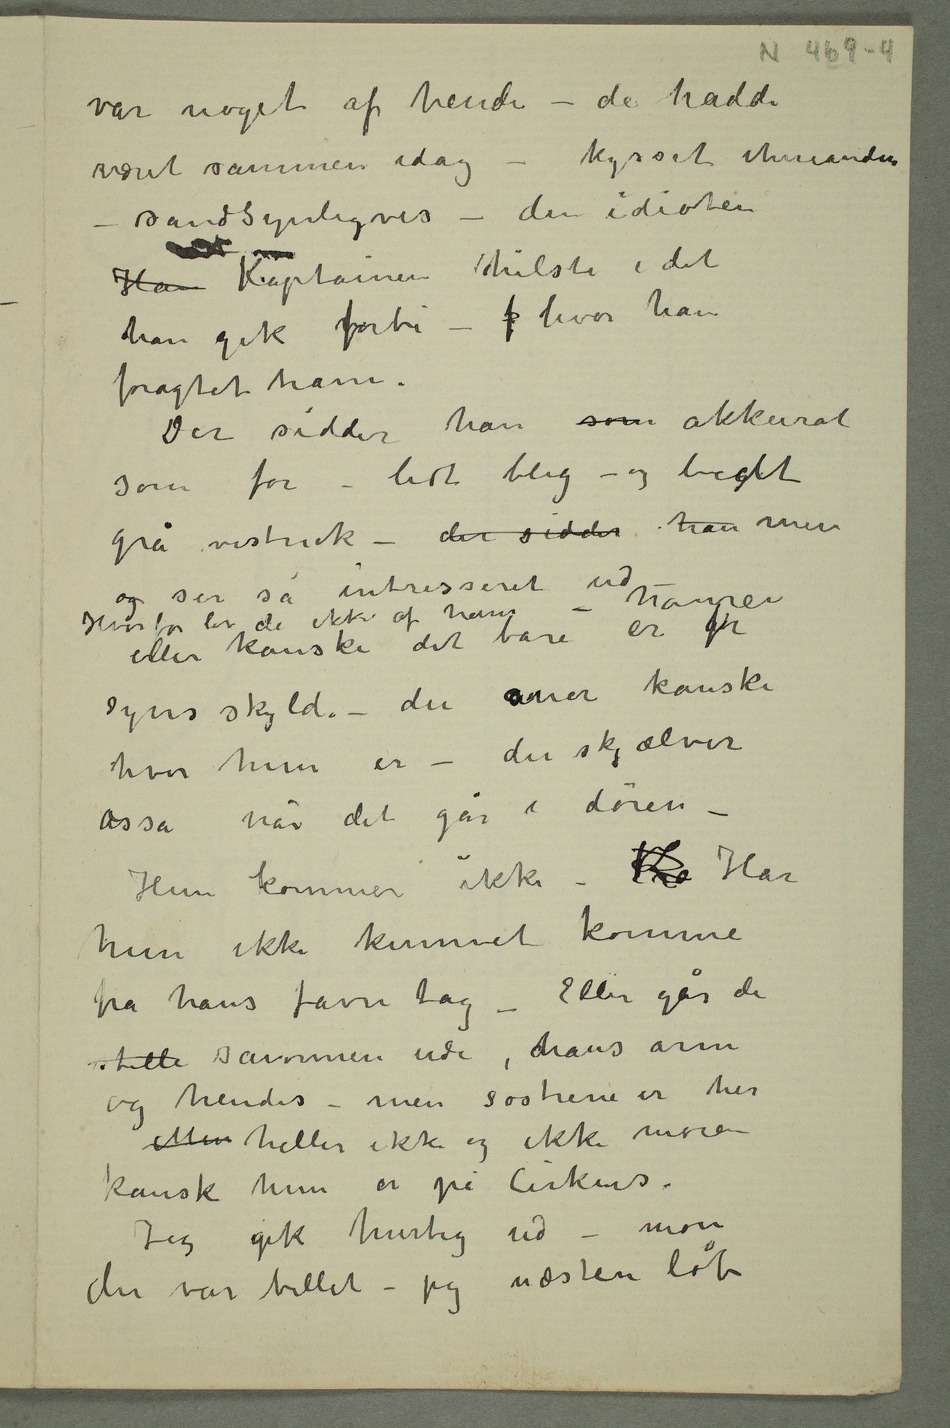 N 469-4
var noget af hende – de hadde
været sammen idag – kysset hinanden
– sandsynligvis – den idioten
Han Kaptainen hilste i det
han gik forbi – f hvor han
fragtet ham.
Der sidder han som akkurat
som før – lidt bleg – og lidt
grå vistnok – der sidder han men
og ser så intresseret ud –
Hvorfor ler de ikke af ham – hanrei
eller kanske det bare er for
syns skyld. – der aner kanske
hvor hun er – der skjælver
osså når det går i døren –
Hun kommer ikke – Har
hun ikke kunnet komme
fra hans favn tag – Eller går de
stille sammen ude, hans arm
og hendes – men søstrene er her
heller ikke og ikke moren
kansk hun er på Cirkus.
Jeg gik hurtig ud – mon
der var billet – jeg næsten løb